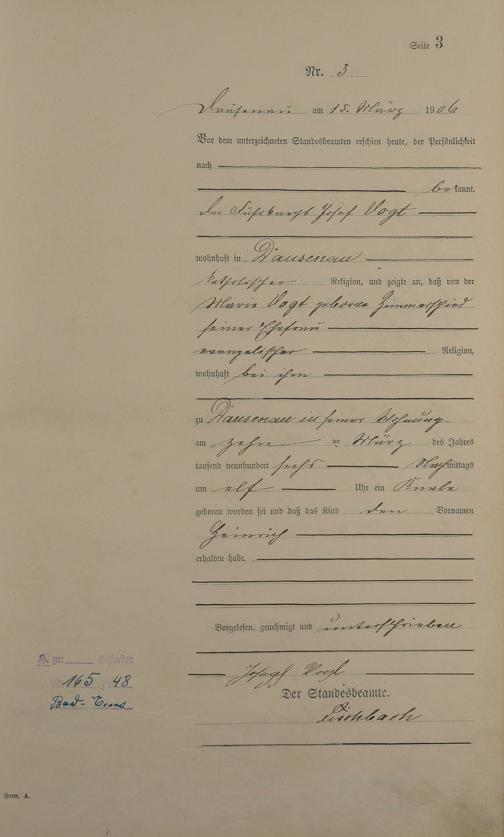 Seite 3
Nr. 3
Dausenau am 15. März 1906
Vor dem unterzeichneten Standesbeamten erschien heute, der Persönlichkeit
nach
bekannt,
der Fuhrknecht Josef Vogt
wohnhaft in Dausenau
katholischer Religion, und zeigte an, daß von der
Marie Vogt geborene Zimmerschied
seiner Ehefrau
evangelischer Religion,
wohnhaft bei ihm
zu Dausenau in seiner Wohnung
am zehn ten März des Jahres
tausend neunhundert sechs Nachmittags
um elf Uhr ein Knabe
geboren worden sei und daß das Kind den Vornamen
Heinrich
erhalten habe.
Vorgelesen, genehmigt und unterschrieben
Joseph Vogt
Der Standesbeamte.
Fischbach
zu: Gestorben
165/48
Bad-Ems
Form. A.